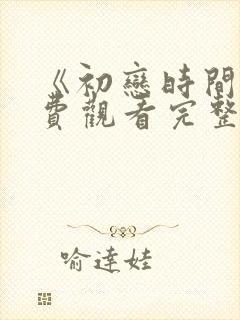 《初戀時間
費觀看完整
喻達娃